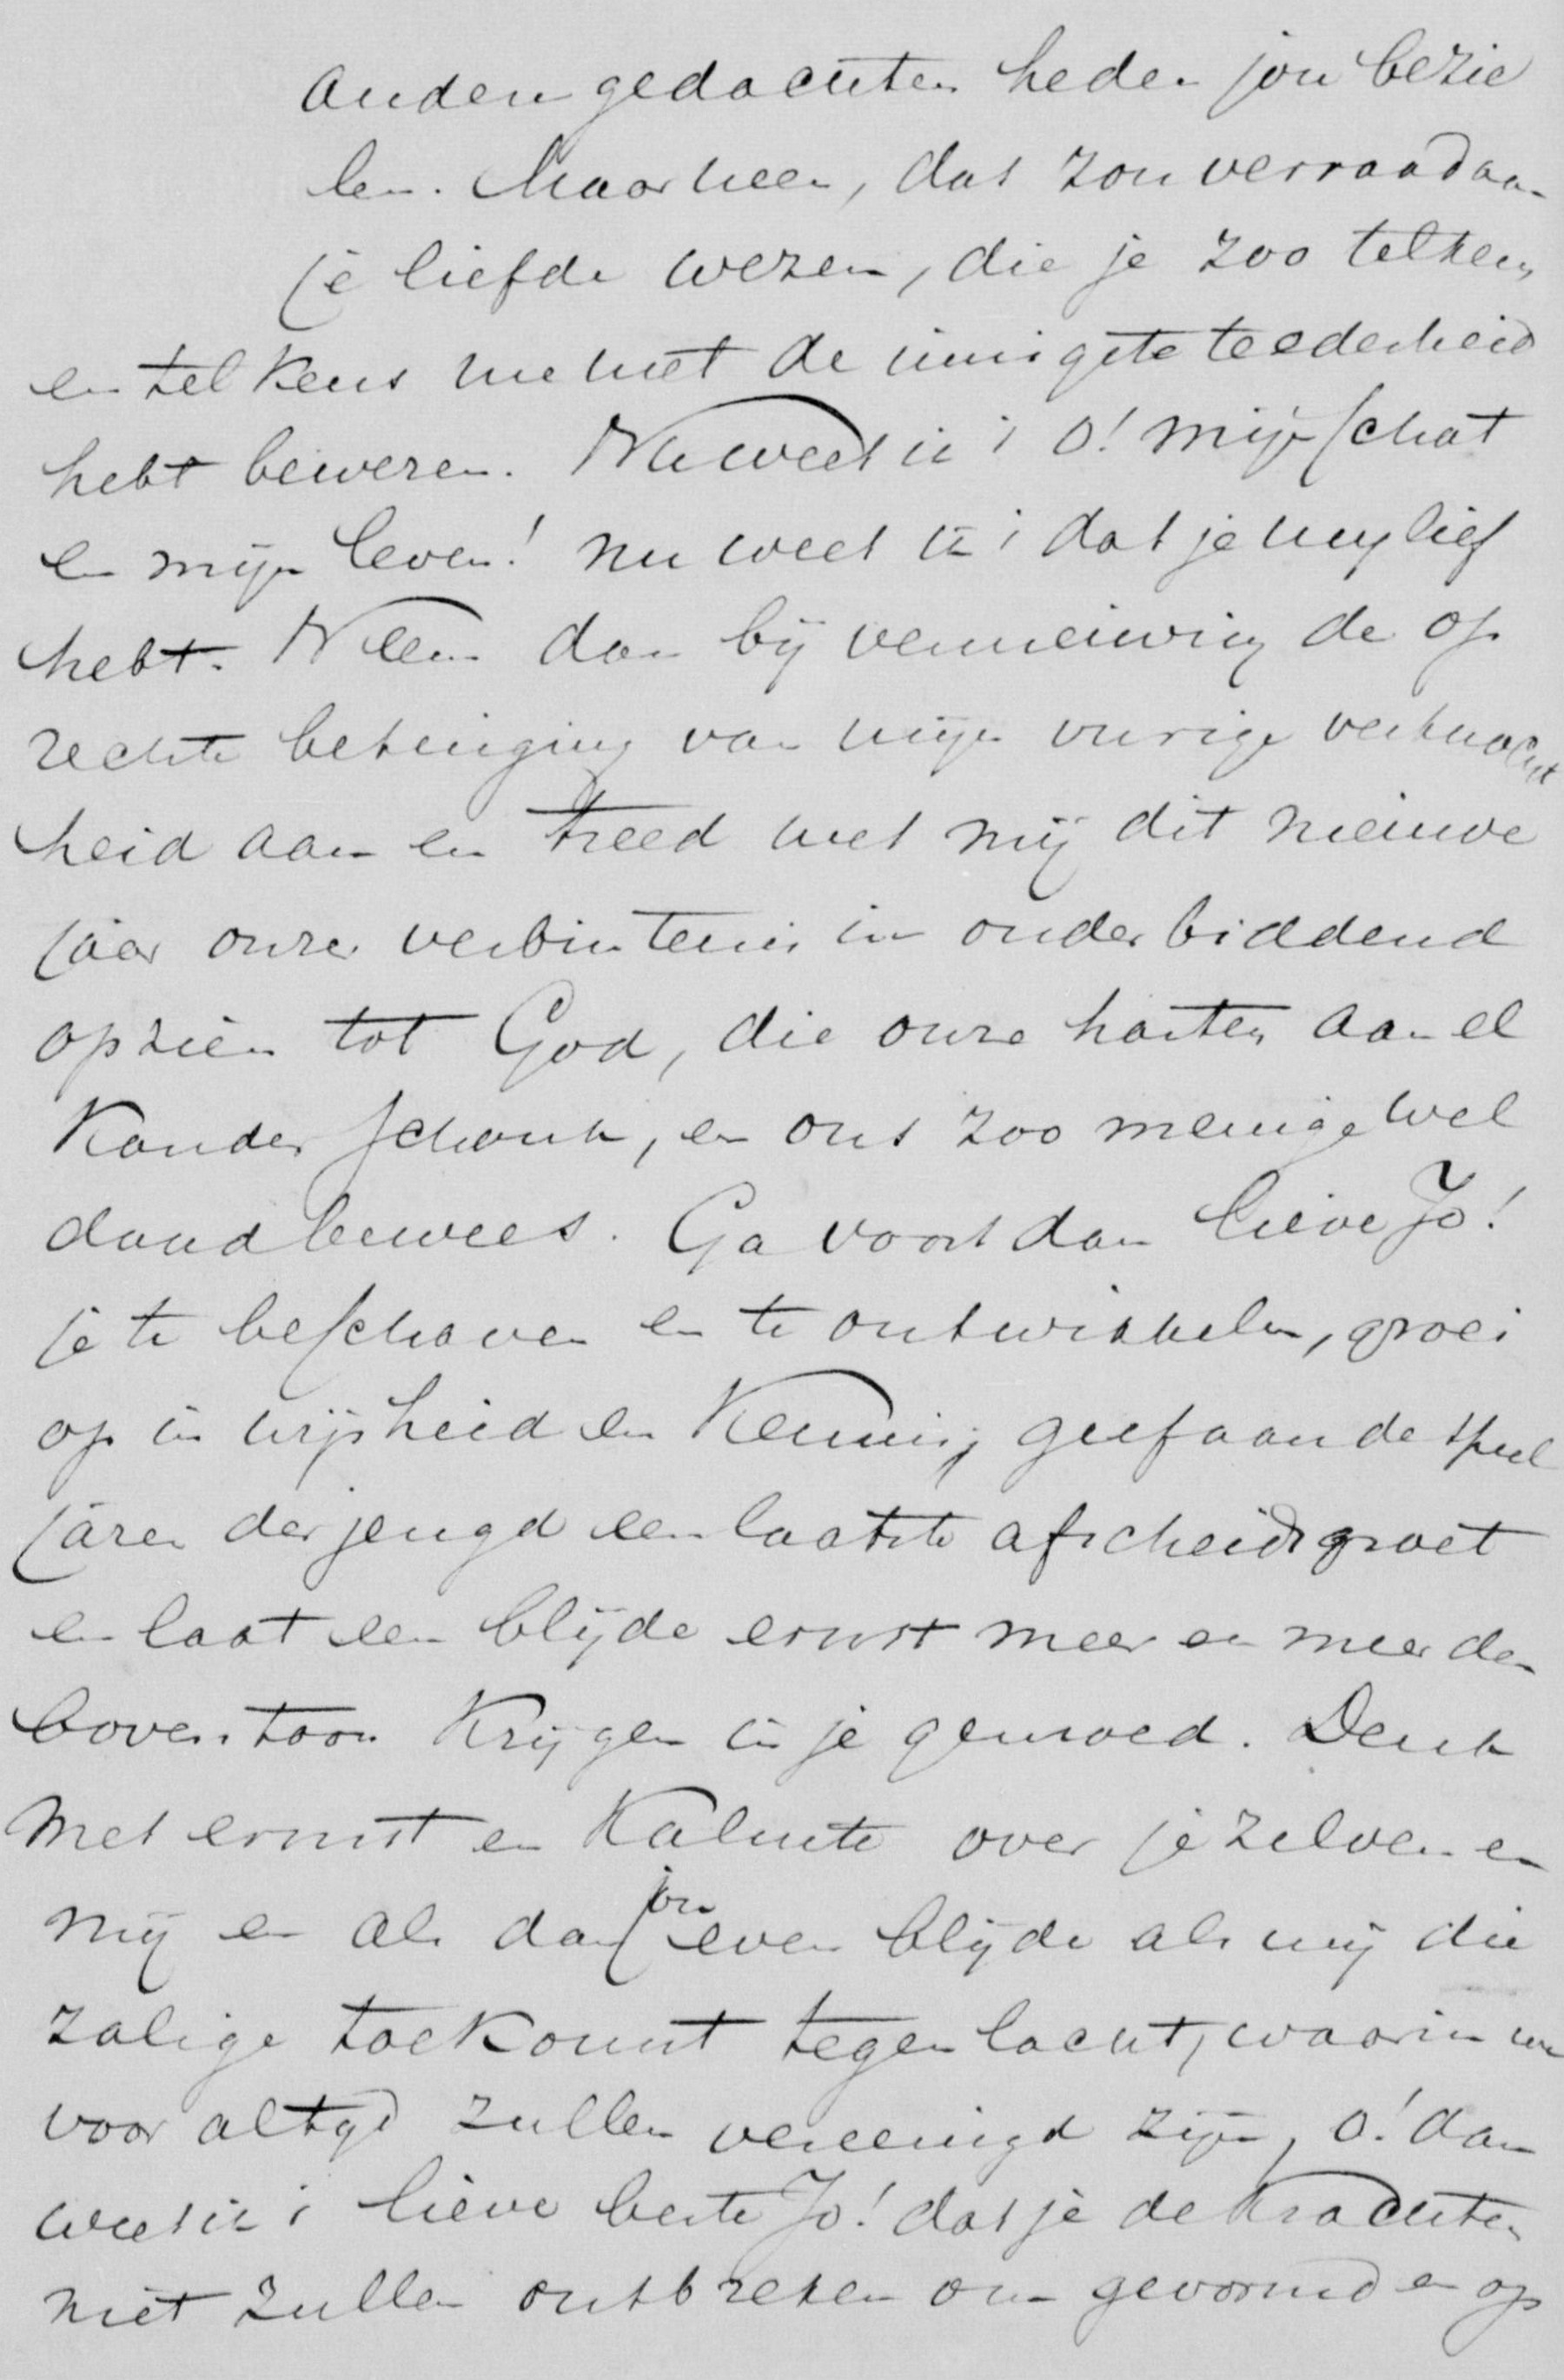 andere gedachten heden jou bezie
len. Maar neen, dat zou verraad aan
je liefde wezen, die je zoo telkens
en telkens me met de innigste teederheid
hebt bewezen. Nu weet ik 't o! mijn schat
en mijn leven! nu weet ik 't dat je mij lief
hebt. Neem dan bij vernieuwing de op
rechte betuiging van mijn vurige verknocht
heid aan en treed met mij dit nieuwe
jaar onzer verbintenis in onder biddend
opzien tot God, die onze harten aan el
kander schonk, en ons zoo menige wel
daad bewees. Ga voort dan lieve Jo!
je te beschaven en te ontwikkelen, groei
op in wijsheid en kennis, geef aan de speel
jaren der jeugd een laatste afscheidsgroet
en laat een blijde ernst meer en meer den
boventoon krijgen in je gemoed. Denk
met ernst en kalmte over je zelven en
mij en als dan jou even blijde als mij die
zalige toekomst tegenlacht, waarin we
voor altijd zullen vereenigd zijn, o! dan
weet ik 't lieve beste Jo! dat je de krachten
niet zullen ontbreken om gevormd en op